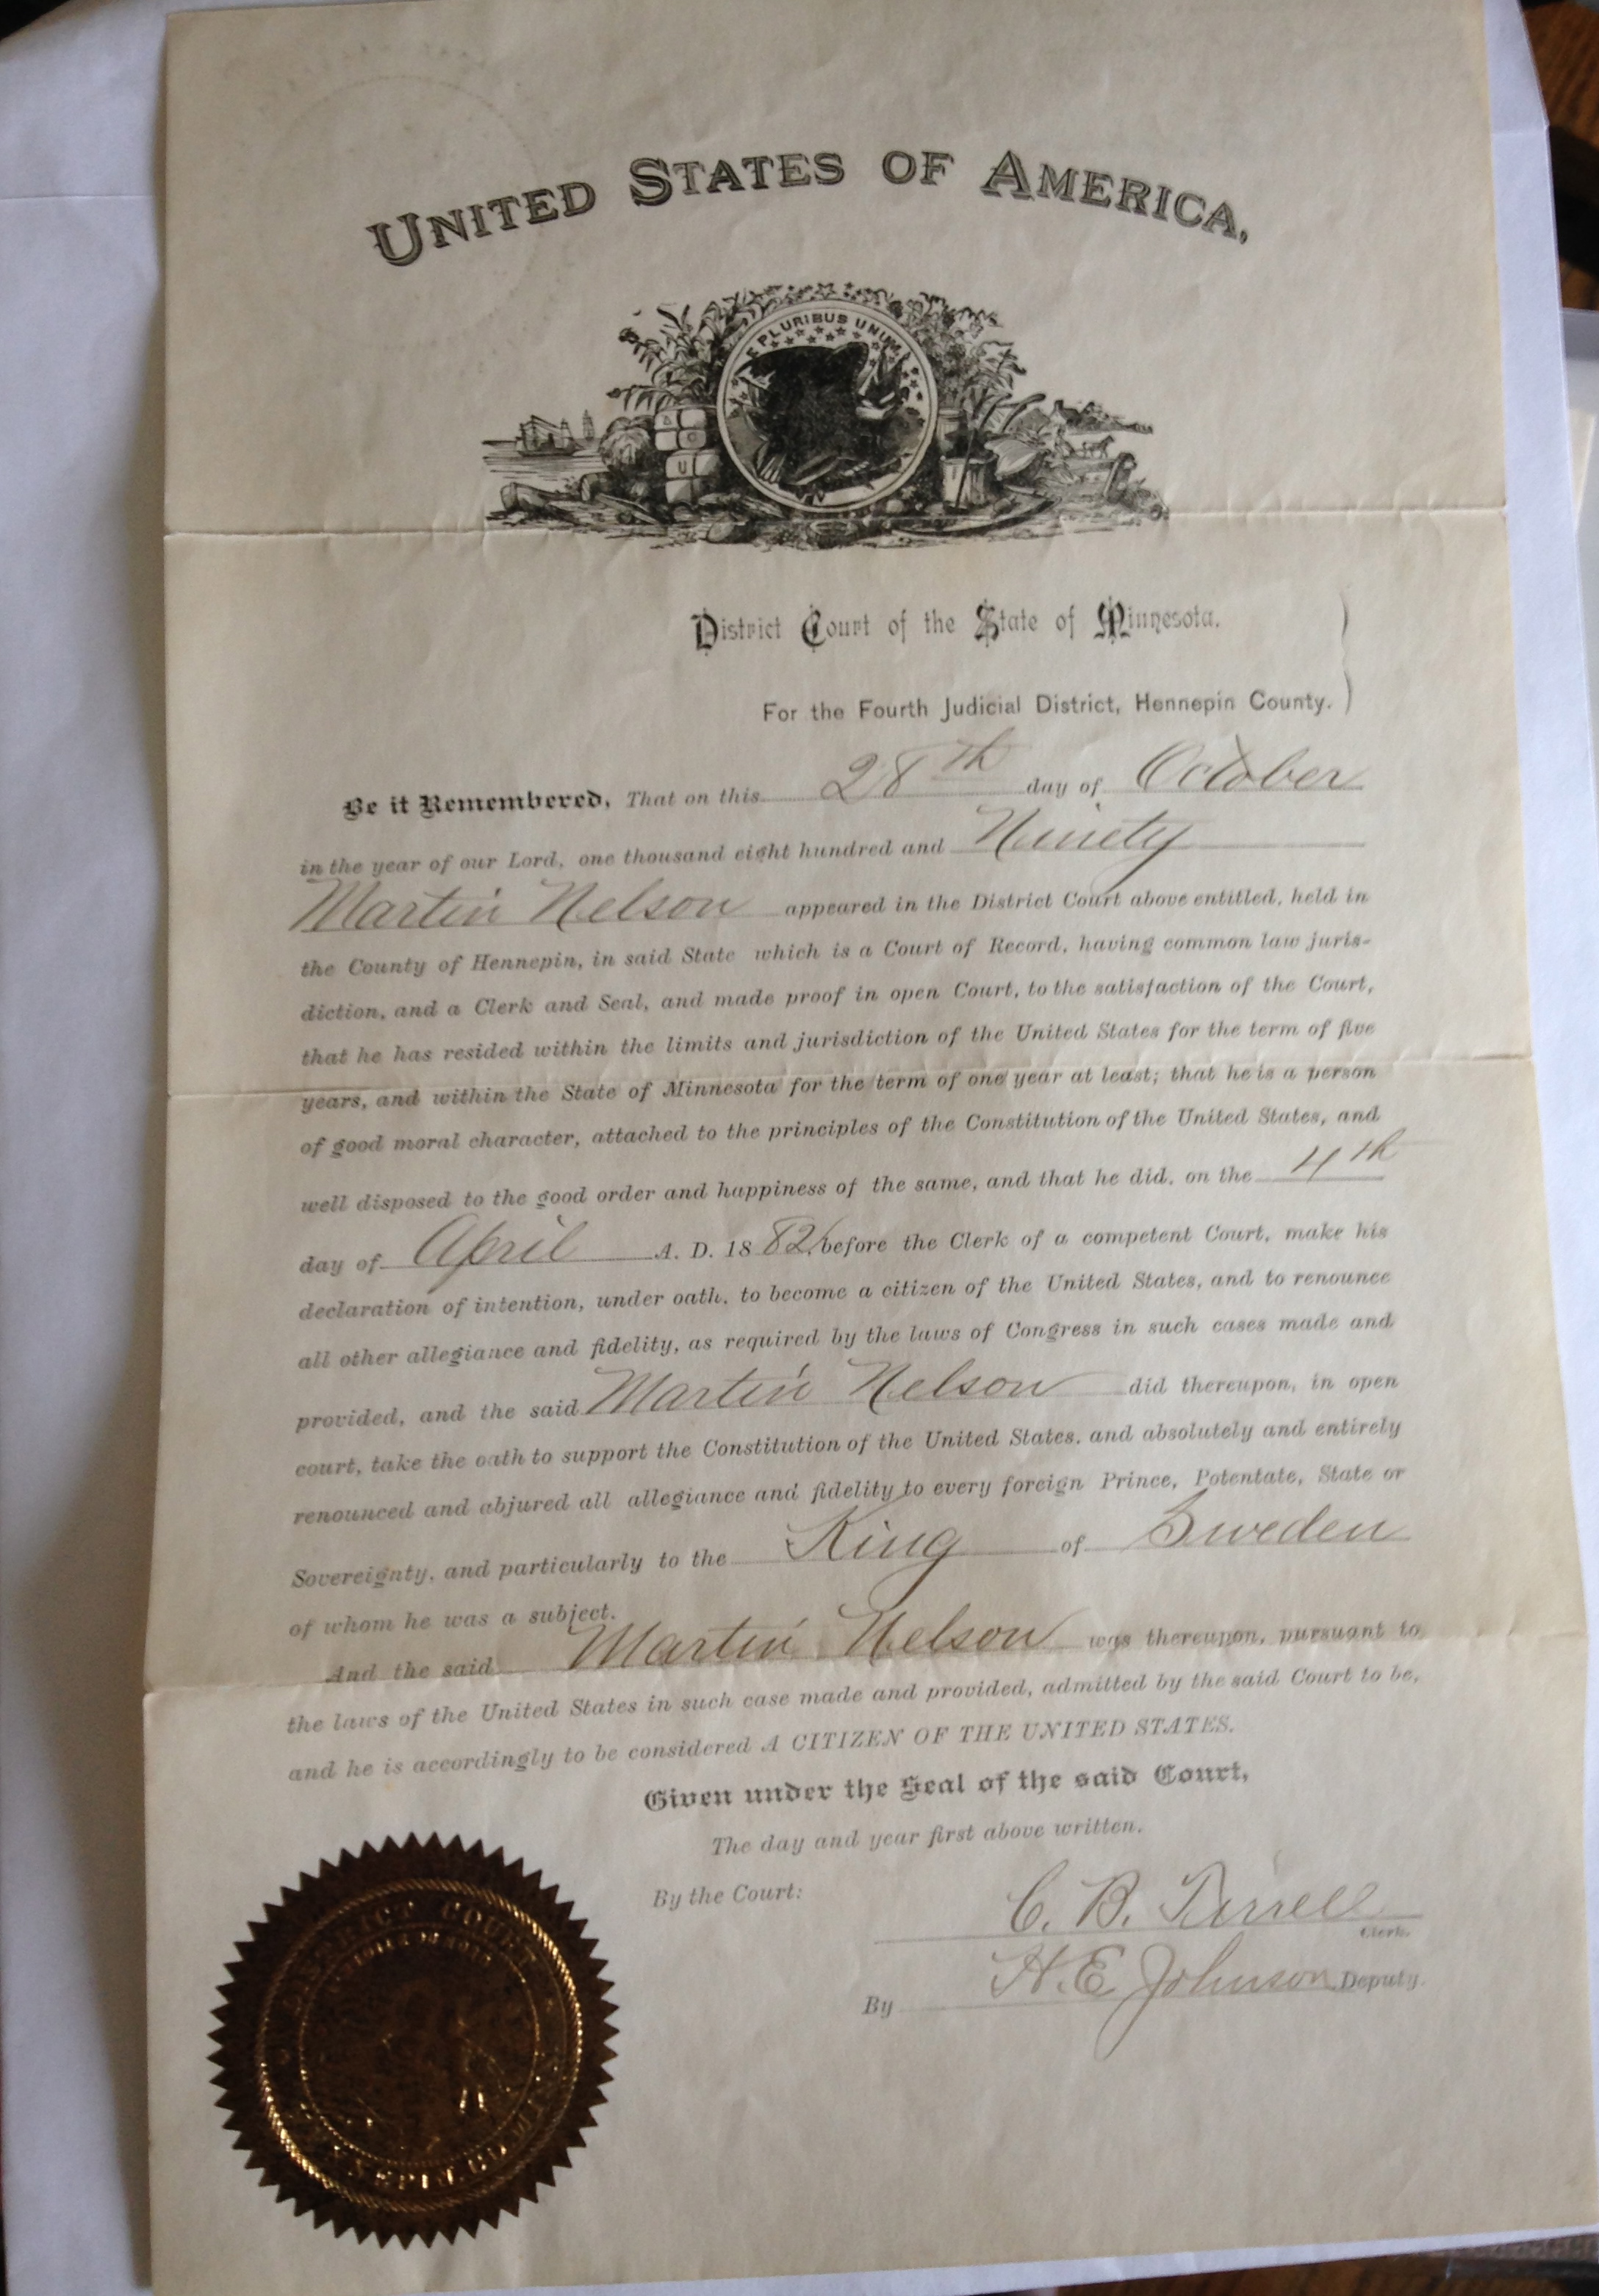 UNITED STATES OF AMERICA,
E PLURIBUS UNUM
District Court of the State of Minnesota.
For the Fourth Judicial District, Hennepin County.
Be it Remembered, That on this 28th day of October
in the year of our Lord, one thousand eight hundred and Ninety
Martin Nelson appeared in the District Court above entitled, held in
the County of Hennepin, in said State which is a Court of Record, having common law juris-
diction, and a Clerk and Seal, and made proof in open Court, to the satisfaction of the Court,
that he has resided within the limits and jurisdiction of the United States for the term of five
years, and within the State of Minnesota for the term of one year at least; that he is a person
of good moral character, attached to the principles of the Constitution of the United States, and
well disposed to the good order and happiness of the same, and that he did, on the 4th
day of April A. D. 1882, before the Clerk of a competent Court, make his
declaration of intention, under oath, to become a citizen of the United States, and to renounce
all other allegiance and fidelity, as required by the laws of Congress in such cases made and
provided, and the said Martin Nelson did thereupon, in open
court, take the oath to support the Constitution of the United States, and absolutely and entirely
renounced and abjured all allegiance and fidelity to every foreign Prince, Potentate, State or
Sovereignty, and particularly to the King of Sweden
of whom he was a subject.
And the said Martin Nelson was thereupon, pursuant to
the laws of the United States in such case made and provided, admitted by the said Court to be,
and he is accordingly to be considered A CITIZEN OF THE UNITED STATES.
Given under the Seal of the said Court,
The day and year first above written.
By the Court:
C. B. Tirrell
Clerk.
By H. E. Johnson Deputy.
DISTRICT COURT